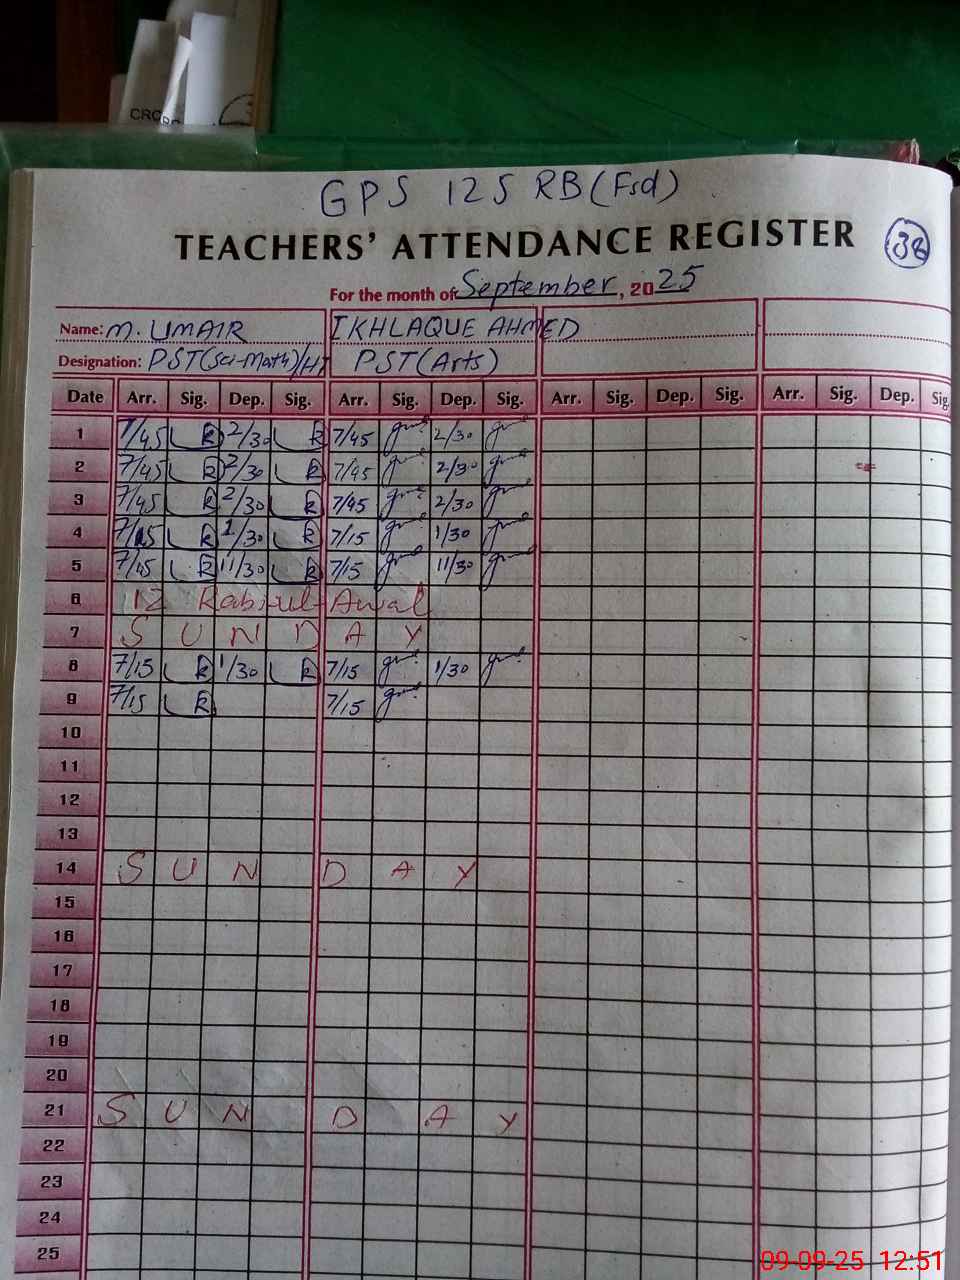 CRC
GPS 125 RB (Fsd)
TEACHERS' ATTENDANCE REGISTER
38
For the month of September, 2025
Name: M. UMAIR IKHLAQUE AHMED
Designation: PST(Sci-Math)/HT PST(Arts)
Date Arr. Sig. Dep. Sig. Arr. Sig. Dep. Sig. Arr. Sig. Dep. Sig. Arr. Sig. Dep. Sig.
1 7/45 2/30 7/45 2/30
2 7/45 2/30 7/45 2/30
3 7/45 2/30 7/45 2/30
4 7/15 1/30 7/15 1/30
5 7/15 11/30 7/15 11/30
6 12 Rabi-ul-Awal
7 SUNDAY
8 7/15 1/30 7/15 1/30
9 7/15 7/15
10
11
12
13
14 SUNDAY
15
16
17
18
19
20
21 SUNDAY
22
23
24
25
09-09-25 12:51